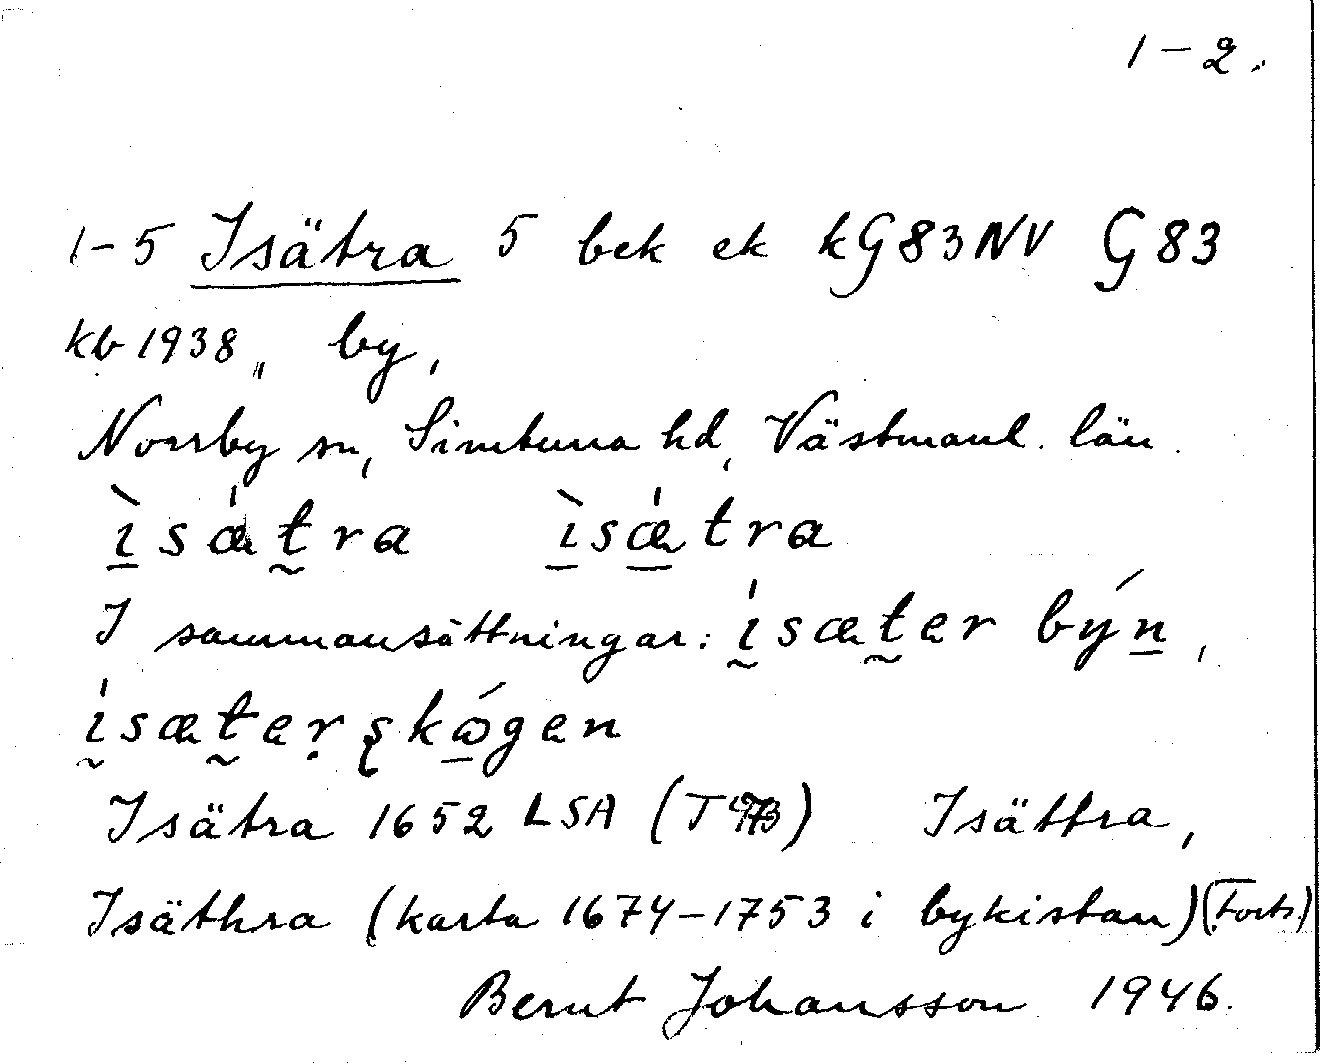 1–2.
1–5 Isätra 5 bek ek kG83NV G83
kb 1938 „ by,
Norrby sn, Simtuna hd, Västmanl. län.
ı̱̀sǽt̰ra ı̱̀sǽ̱tra
I sammansättningar: ḭ́sæt̰er býṉ,
ḭ́sæt̰eṛ ʂkώ̱gen
Isätra 1652 LSA (T) Isättra,
Isäthra (karta 1674–1753 i bykistan) (Forts.)
Bernt Johansson 1946.